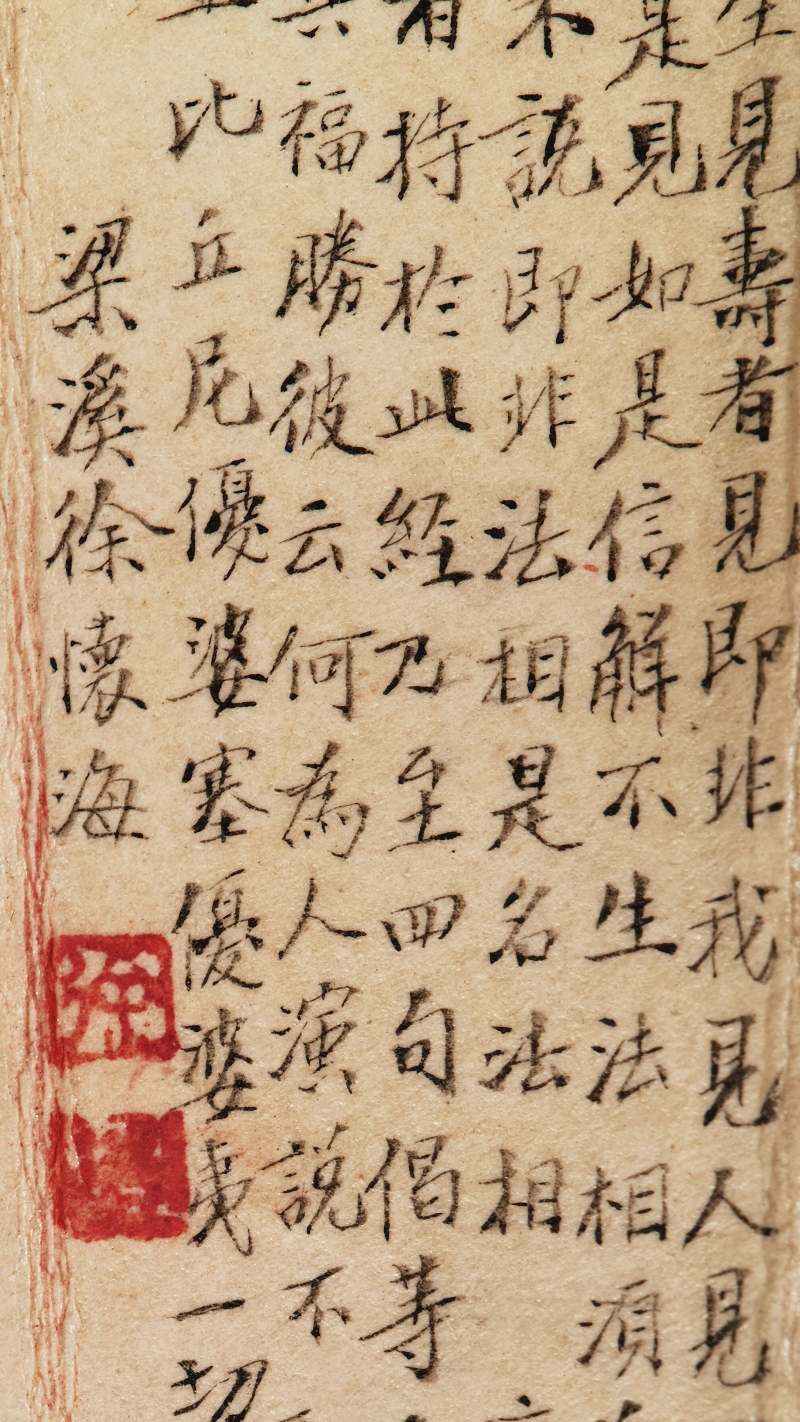 生見壽者見即非我見人見
是見如是信解不生法相須
不說即非法相是名法相
者持於此經乃至四句偈等
其福勝彼云何為人演說不
比丘尼優婆塞優婆夷一切
梁溪徐懷海
徐